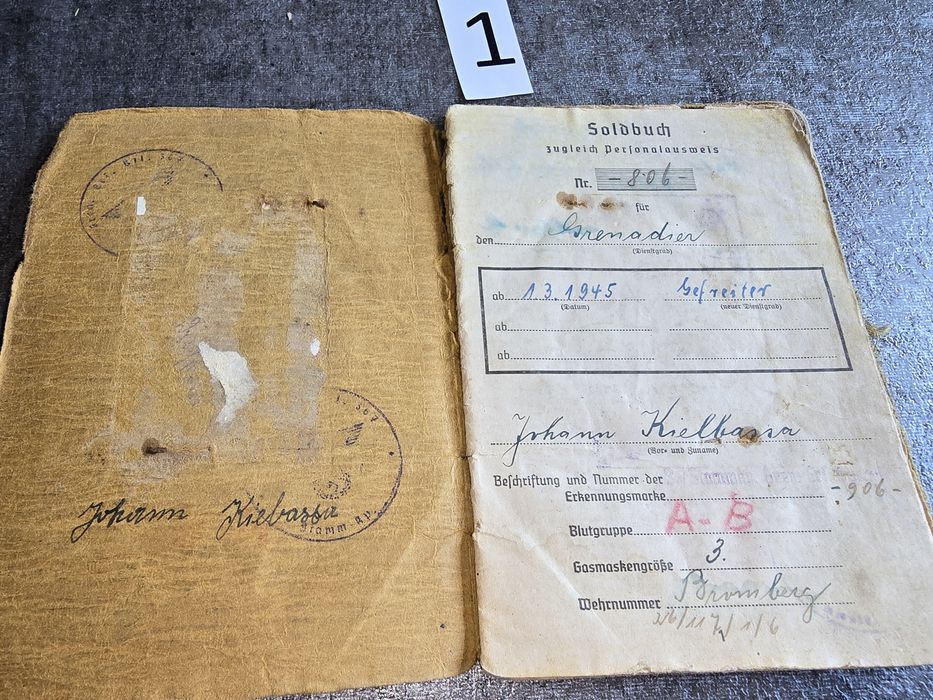 1
Johann Kiebassa
Soldbuch
zugleich Personalausweis
Nr. -806-
für
den Grenadier
(Dienstgrad)
ab 1.3.1945 Gefreiter
(Datum) (neuer Dienstgrad)
ab
ab
Johann Kielbassa
(Vor- und Zuname)
Beschriftung und Nummer der
Erkennungsmarke -906-
Blutgruppe A-B
Gasmaskengröße 3.
Wehrnummer Bromberg